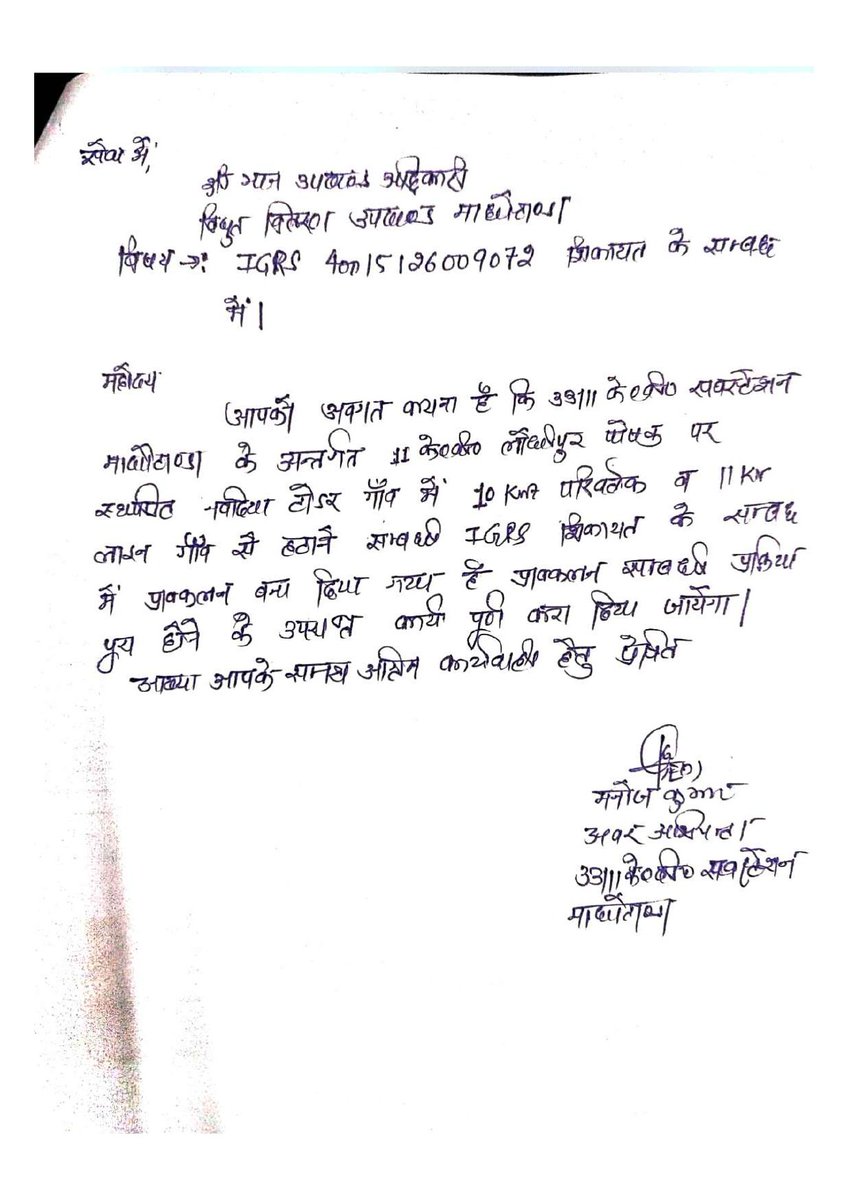 सेवा में,
श्री मान उपखण्ड अधिकारी
विधुत वितरण उपखण्ड माधोटाण्डा
विषय →: IGRS 40015126009072 शिकायत के सम्बन्ध
में।
महोदय
आपको अवगत कराना है कि 33/11 के०वी० सबस्टेशन
माधोटाण्डा के अन्तर्गत 11 के०वी० पोषक पर
स्थापित टोडर गाँव में 10 KVA परिवर्तक व 11 KV
लाइन गाँव से हटाने सम्बन्धी IGRS शिकायत के सम्बन्ध
में प्राक्कलन बना दिया गया है प्राक्कलन सम्बन्धी प्रक्रिया
पूरा होने के उपरान्त कार्य पूर्ण करा दिया जायेगा।
आख्या आपके समक्ष अग्रिम कार्यवाही हेतु प्रेषित
मनोज कुमार
अवर अभियन्ता
33/11 के०वी० सबस्टेशन
माधोटाण्डा